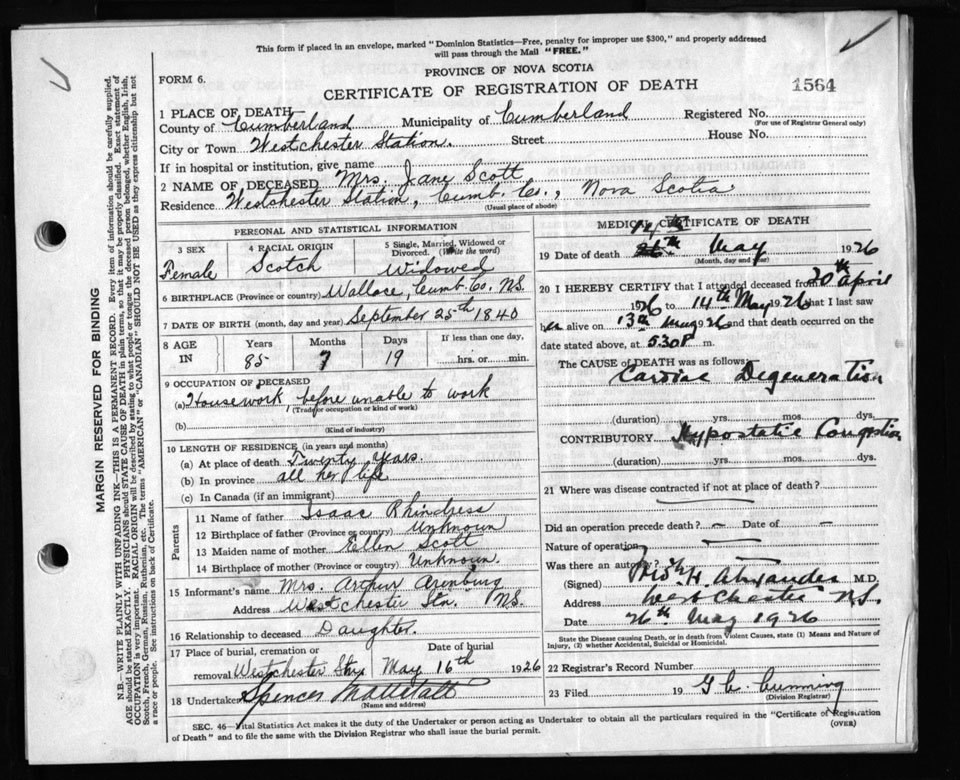 This form if placed in an envelope, marked "Dominion Statistics—Free, penalty for improper use $300," and properly addressed
will pass through the Mail "FREE."
PROVINCE OF NOVA SCOTIA
FORM 6.
CERTIFICATE OF REGISTRATION OF DEATH
1564
1 PLACE OF DEATH
County of Cumberland Municipality of Cumberland Registered No.
(For use of Registrar General only)
City or Town Westchester Station. Street House No.
If in hospital or institution, give name
2 NAME OF DECEASED Mrs. Jane Scott
Residence Westchester Station, Cumb. Co., Nova Scotia
(Usual place of abode)
PERSONAL AND STATISTICAL INFORMATION
3 SEX 4 RACIAL ORIGIN 5 Single, Married, Widowed or
Divorced. (Write the word)
Female Scotch Widowed
6 BIRTHPLACE (Province or country) Wallace, Cumb. Co. N.S.
7 DATE OF BIRTH (month, day and year) September 25th 1840
8 AGE IN Years Months Days If less than one day,
85 7 19 hrs. or min.
9 OCCUPATION OF DECEASED
(a) Housework before unable to work
(Trade or occupation or kind of work)
(b)
(Kind of industry)
10 LENGTH OF RESIDENCE (in years and months)
(a) At place of death Twenty years.
(b) In province all her life
(c) In Canada (if an immigrant)
Parents
11 Name of father Isaac Rhindress
12 Birthplace of father (Province or country) Unknown
13 Maiden name of mother Ellen Scott
14 Birthplace of mother Unknown.
15 Informant's name Mrs. Arthur Arenburg
Address Westchester Sta. N.S.
16 Relationship to deceased Daughter.
17 Place of burial, cremation or Date of burial
removal Westchester Stn May 16th 1926
18 Undertaker Spencer Mattatall
(Name and address)
MEDICAL CERTIFICATE OF DEATH
14th
19 Date of death 26th May 1926
(Month, day and year)
20 I HEREBY CERTIFY that I attended deceased from 20th April
1926 to 14th May 1926 that I last saw
her alive on 13th May 1926 and that death occurred on the
date stated above, at 5.30 P m.
The CAUSE OF DEATH was as follows:
Cardiac Degeneration
(duration) yrs. mos. dys.
CONTRIBUTORY Hypostatic Congestion
(duration) yrs. mos. dys.
21 Where was disease contracted if not at place of death?
Did an operation precede death? – Date of –
Nature of operation
Was there an autopsy?
(Signed) H. Alexander M.D.
Address Westchester N.S.
Date 26th May 1926
State the Disease causing Death, or in death from Violent Causes, state (1) Means and Nature of
Injury, (2) whether Accidental, Suicidal or Homicidal.
22 Registrar's Record Number
23 Filed 19 G C. Cumming
(Division Registrar)
SEC. 46—Vital Statistics Act makes it the duty of the Undertaker or person acting as Undertaker to obtain all the particulars required in the "Certificate of Registration
of Death" and to file the same with the Division Registrar who shall issue the burial permit.
(OVER)
MARGIN RESERVED FOR BINDING
N.B.—WRITE PLAINLY WITH UNFADING INK—THIS IS A PERMANENT RECORD. Every item of information should be carefully supplied.
AGE should be stated EXACTLY. PHYSICIANS should STATE CAUSE OF DEATH in plain terms, so that it may be properly classified. Exact statement of
OCCUPATION is very important. RACIAL ORIGIN will be described by stating to what people or tongue the deceased person belonged, whether English, Irish,
Scotch, French, German, Russian, Ruthenian, etc. The terms "AMERICAN" or "CANADIAN" SHOULD NOT BE USED as they express citizenship but not
a race or people. See instructions on back of Certificate.